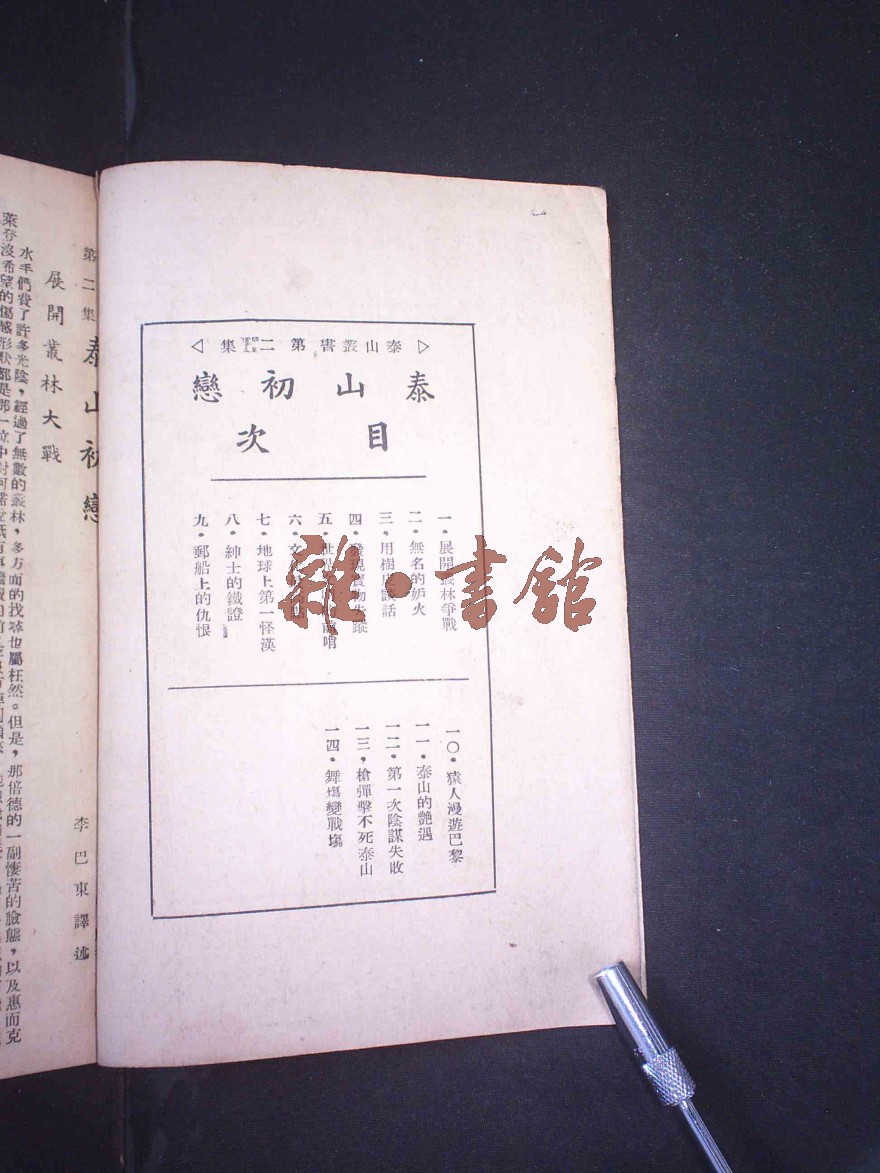 ▷ 泰山叢書第二集 ◁
泰山初戀
目次
一・展開叢林爭戰
二・無名的妒火
三・用樹皮談話
四・發現寶物失蹤
五・世界
六・文
七・地球上第一怪漢
八・紳士的鐵證
九・郵船上的仇恨
一〇・猿人漫遊巴黎
一一・泰山的艷遇
一二・第一次陰謀失敗
一三・槍彈擊不死泰山
一四・舞塲變戰塲
雜・書館
第二集 泰山初戀
李巴東譯述
展開叢林大戰
水手們費了許多光陰，經過了無數的叢林，多方面的找尋也屬枉然。但是，那倍德的一副悽苦的臉態，以及惠而克
萊登沒希望的傷感形狀都是那一位中